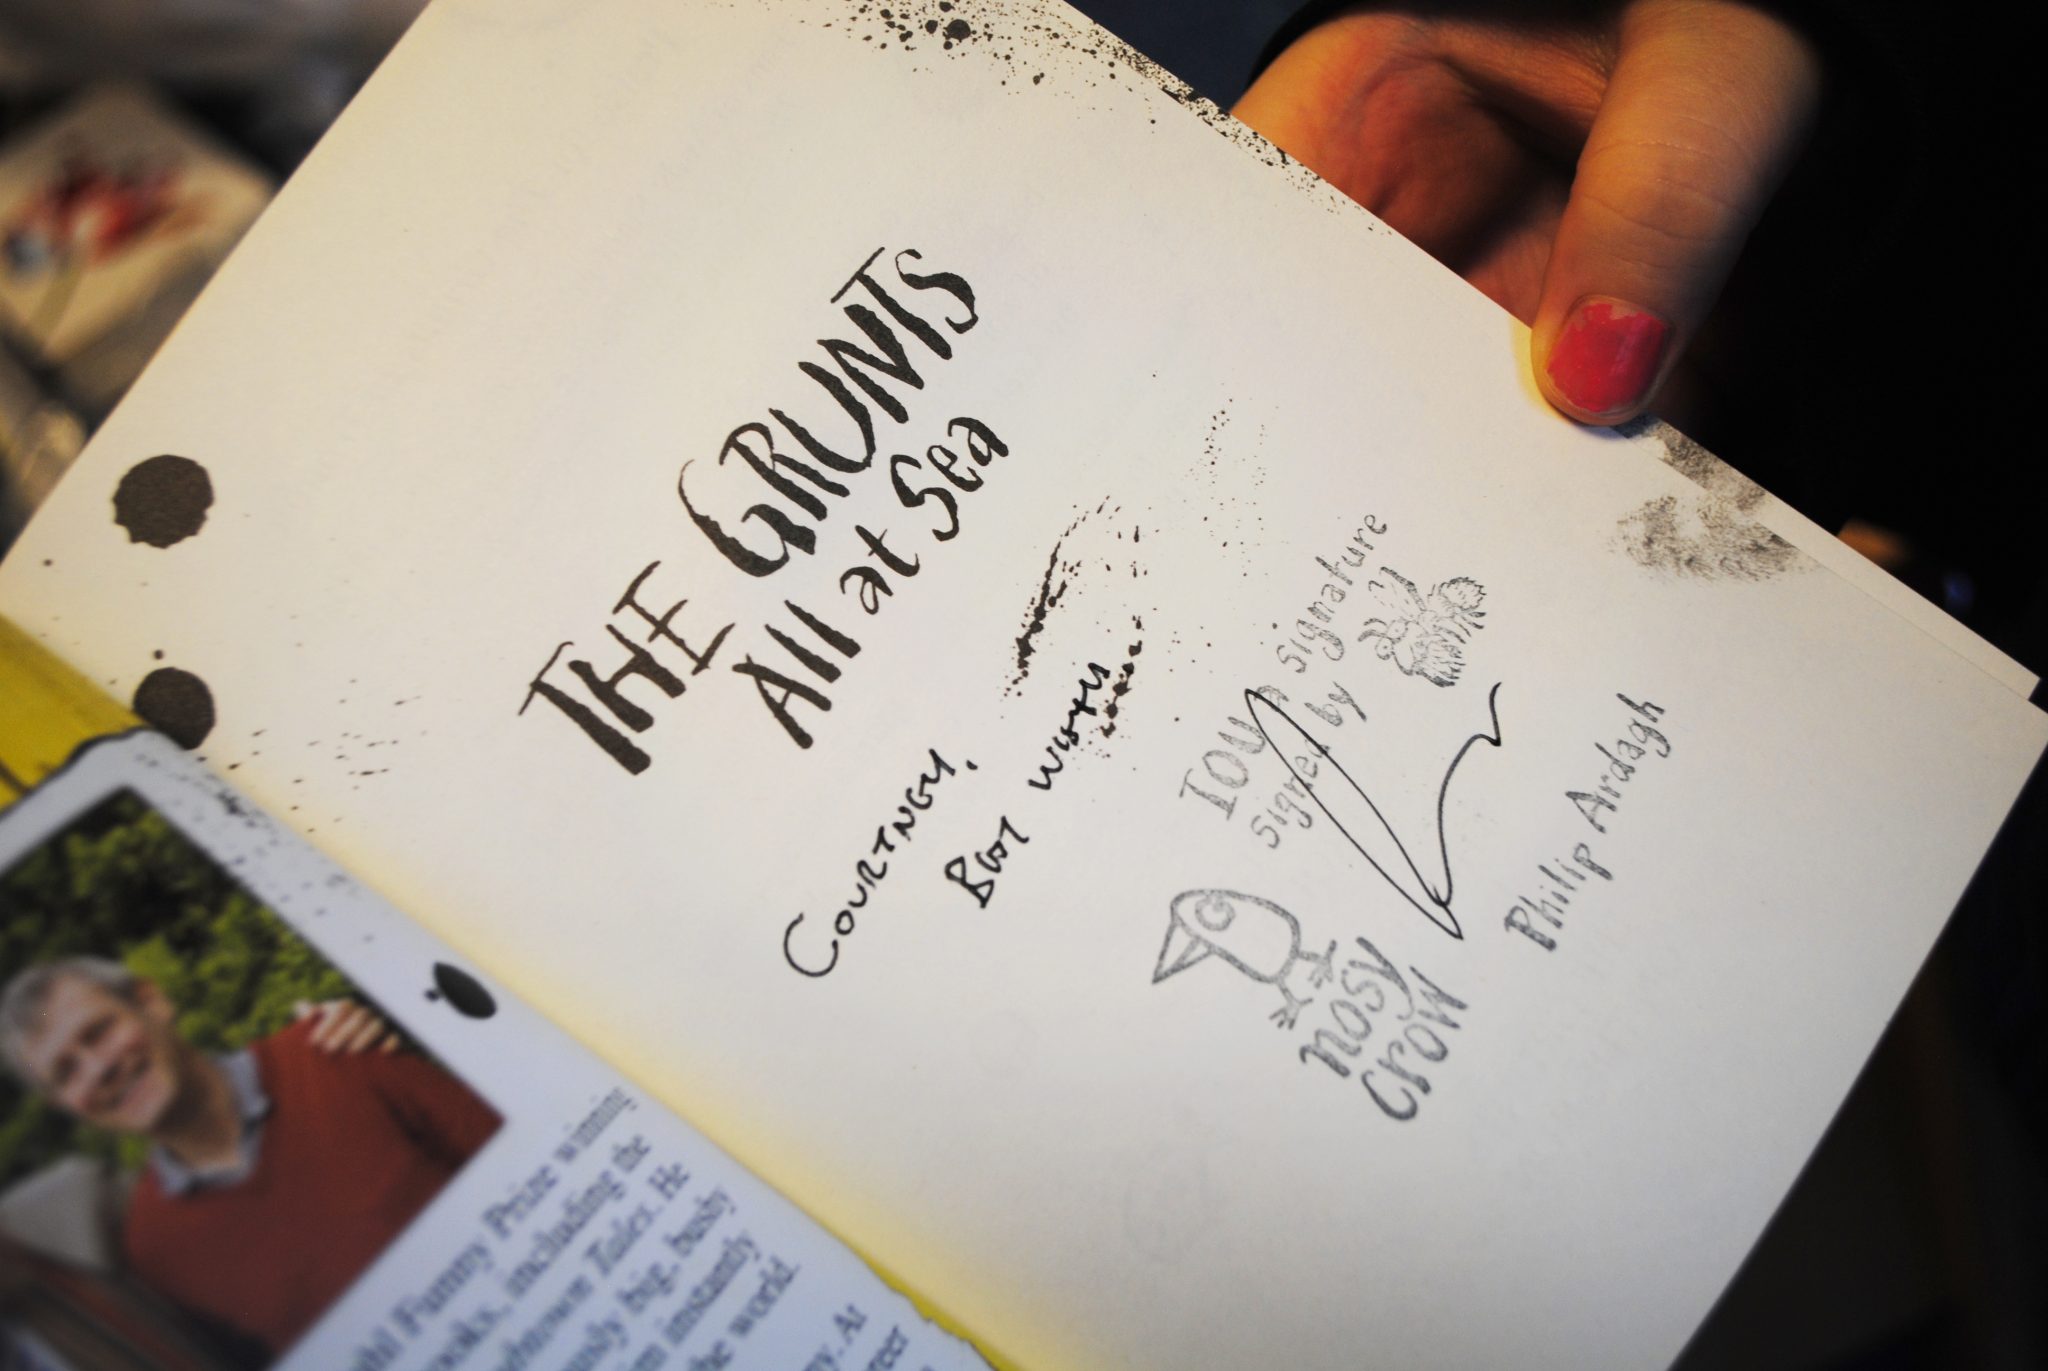 THE GRUNTS
All at Sea
COURTNEY,
BEST WISHES
IOU a signature
signed by
nosy
crow
Philip Ardagh
ahl Funny Prize winning
ooks, including the
Tales. He
big, bushy
instantly
the world.
At